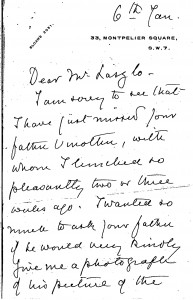 6th Jan.
33, MONTPELIER SQUARE,
S.W.7.
Dear Mr Laszlo -
I am sorry to see that
I have just missed your
father & mother, with
whom I lunched so
pleasantly two or three
weeks ago. I wanted so
much to ask your father
if he would very kindly
give me a photograph
of his picture of the